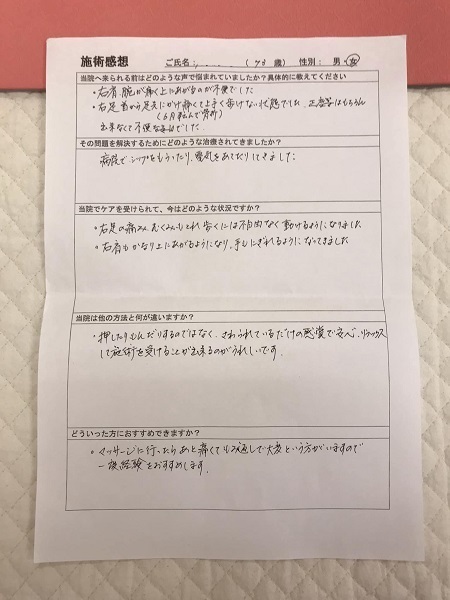 施術感想 ご氏名: (73 歳) 性別: 男・女
当院へ来られる前はどのような声で悩まれていましたか?具体的に教えてください
・右肩、腕が痛く上にあがるのが不便でした
・右足首から足先にかけ痛くて上手く歩けない状態でした、正座等はもちろん
(6月転んで骨折)
出来なくて不便な毎日でした
その問題を解決するためにどのような治療されてきましたか?
病院でシップをもらったり、電気をあてたりしてきました
当院でケアを受けられて、今はどのような状況ですか?
・右足の痛み、むくみもとれ歩くには不自由なく動けるようになりました
・右肩もかなり上にあがるようになり、手もにぎれるようになってきました
当院は他の方法と何が違いますか?
・押したりもんだりするのではなく、さわられているだけの感覚で安心、リラックス
して施術を受けることが出来るのがうれしいです.
どういった方におすすめできますか?
・マッサージに行ったらあと痛くてもみ返しで大変という方がいますので
一度経験をおすすめします.